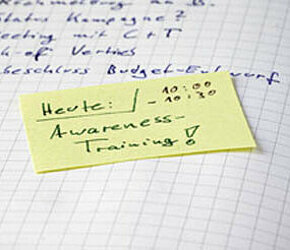 Rückmeldung an B.
Status Kampagne?
eeting mit C+T
k-of Vertrieb
beschluss Budget-Entwurf
Heute: 10:00
- 10:30
Awareness-
Training!